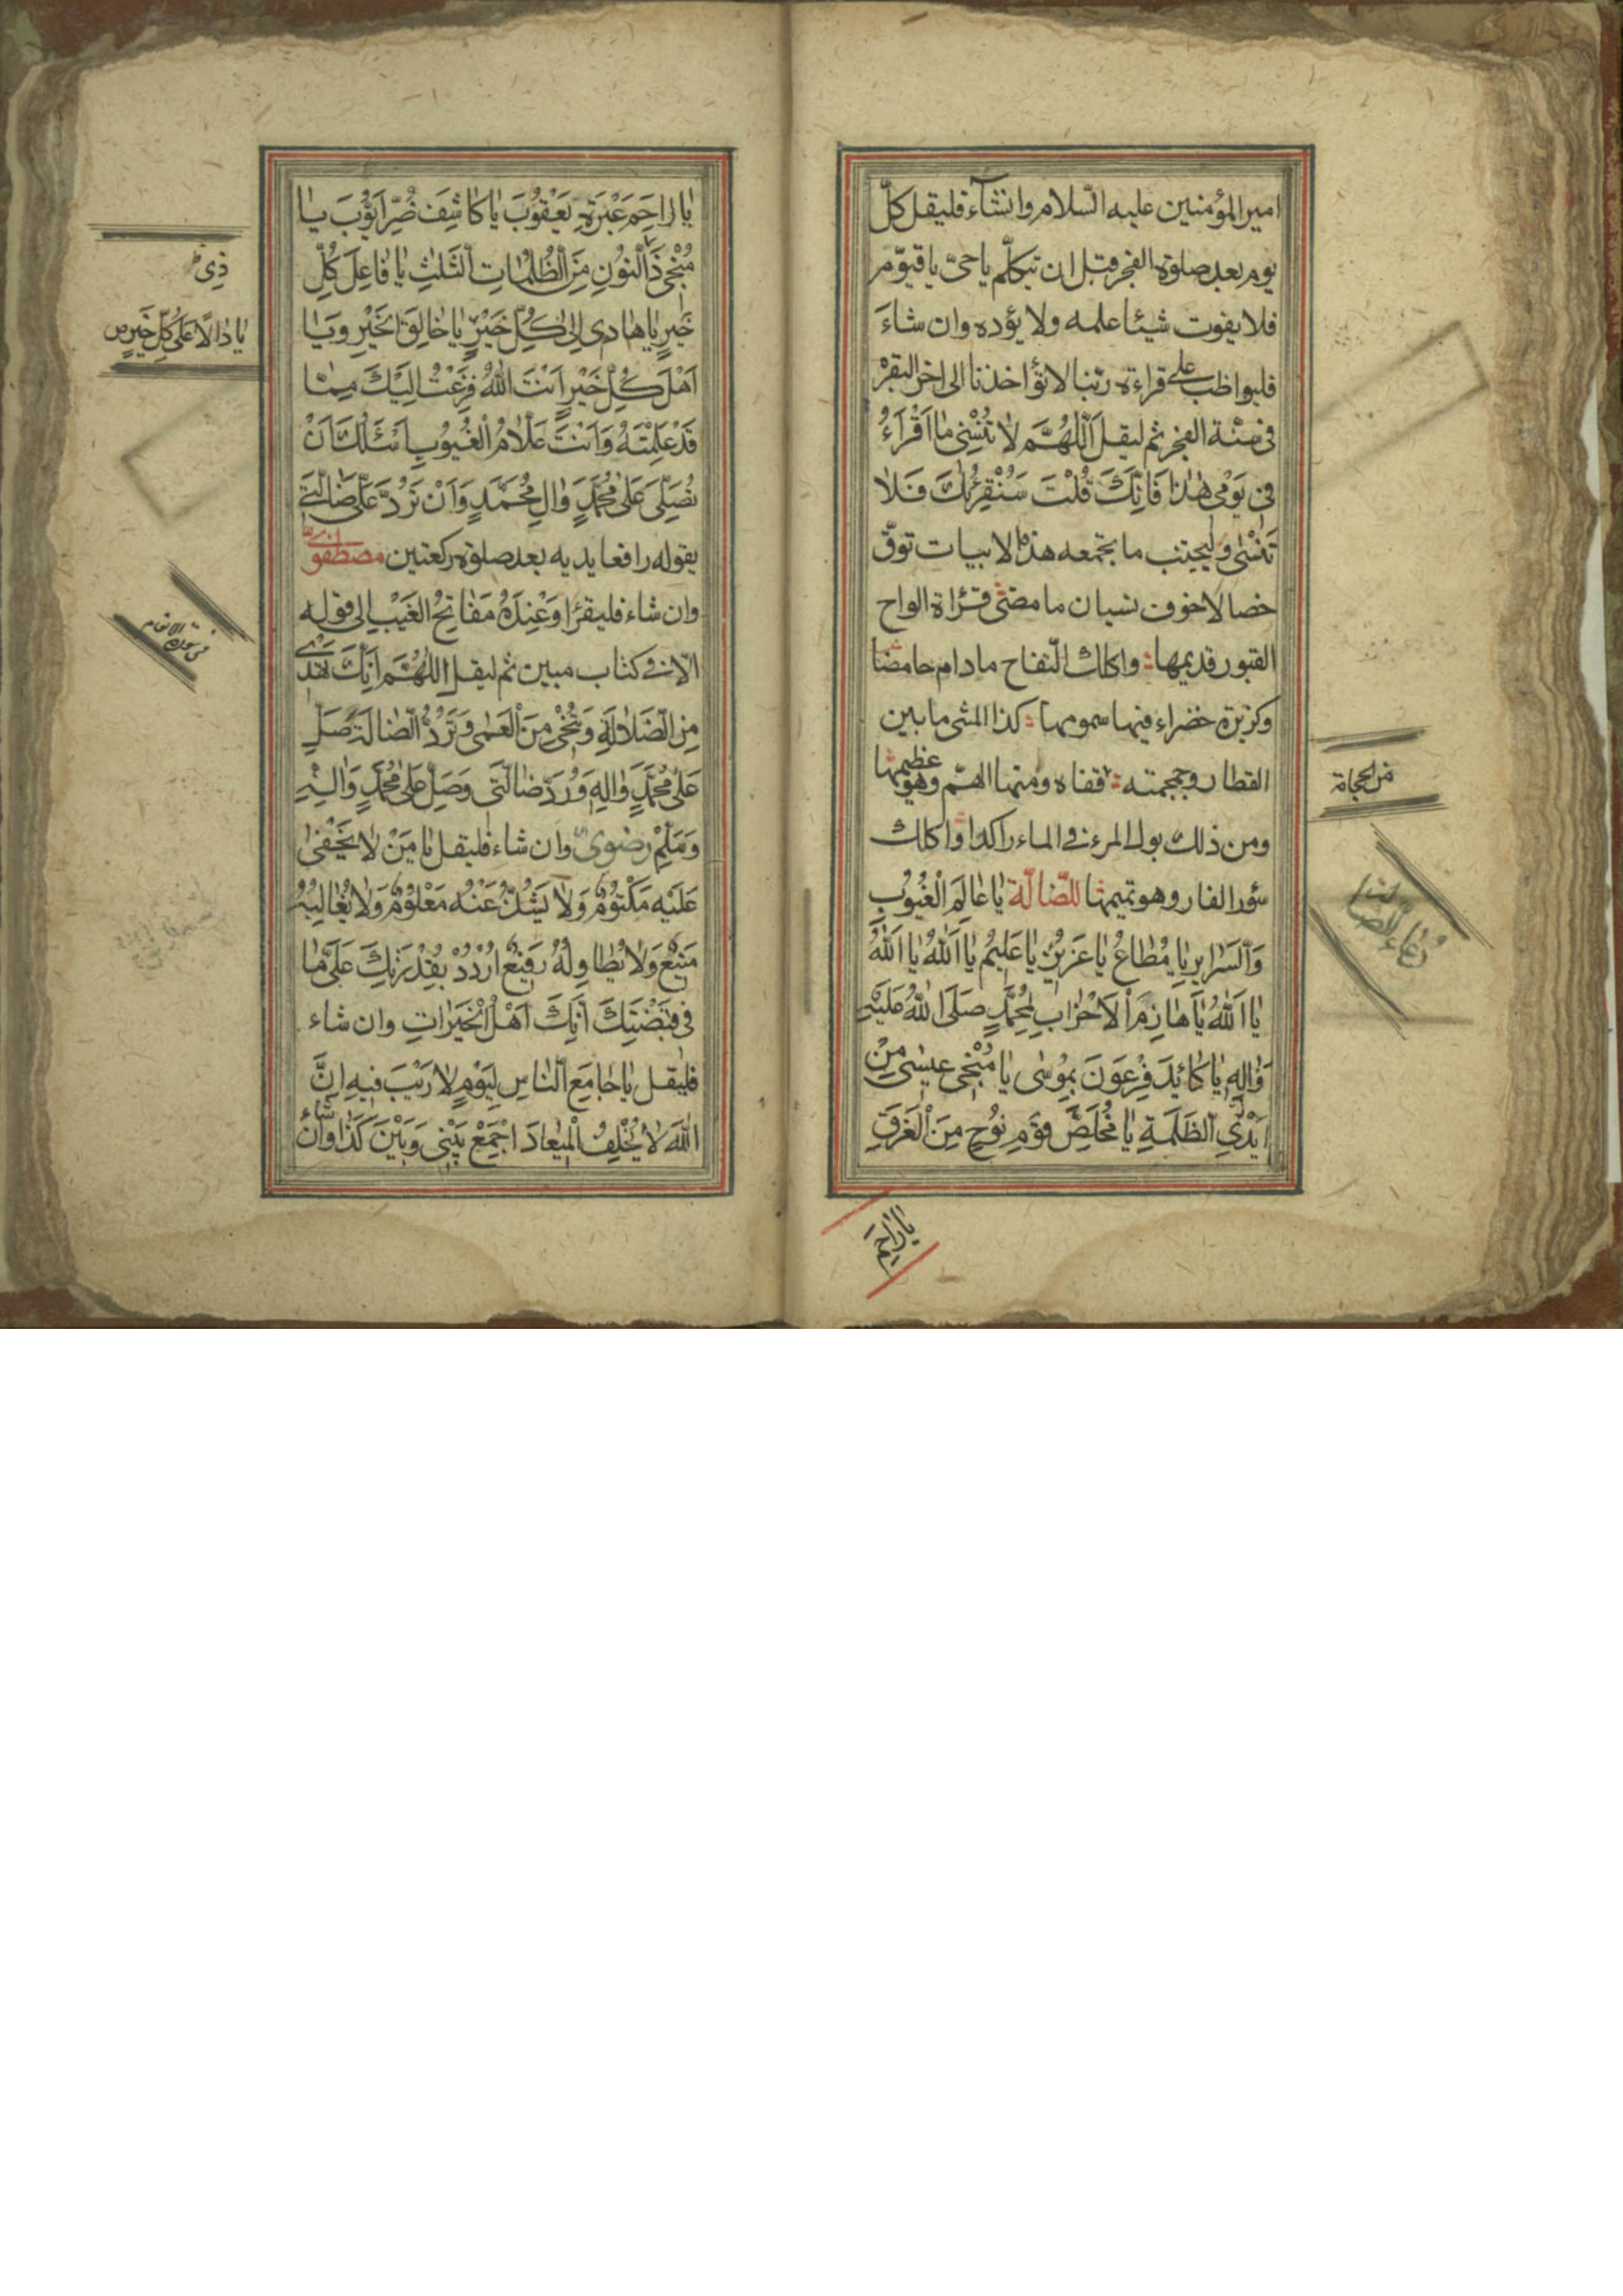 امير المؤمنين عليه السّلام وانشآء فليقل كلّ
يوم بعد صلوة الفجر وقبل ان تيكلّم ياحىّ ياقيوّم
فلا يفوت شيئا علمه ولا يؤده وان شاءَ
فليواظب على قراءة ربّنا لا تؤاخذنا الى اخر البقرة
فى سنّة الفجر ثم ليقل اَللّٰهُمَّ لاٰ تُنْسِنى مٰا اَقْرَاءُ
فى يَوْمى هٰذٰا فَاِنَّكَ قُلْتَ سَنُقْرِئُكَ فَلاٰ
تَنْسٰى وليجتنب ما يجمعه هذه الابيات توقّ
خصالا خوف نسيان ما مضى قراءة الواح
القبور قديمها واكلك التّفاح مادام حامضا
وكزبرة خضراء فيها سمومها كذا المشى مابين
القطار وججمته قفاه ومنها الهمّ وهو عظيمها
ومن ذلك بول المرء فى الماء راكدا واكلك
سؤر الفار وهو تميمها للضّالّة يٰا عٰالِمَ الْغُيُوبِ
وَالسَّرٰايِرِ يٰا مُطٰاعُ يٰا عَزيزُ يٰا عَليمُ يٰا اَللّٰهُ يٰا اَللّٰهُ
يٰا اَللّٰهُ يٰا هٰازِمَ الْاَحْزٰابِ لِمُحَمَّدٍ صَلَّى اللّٰهُ عَلَيْهِ
وَاٰلِهِ يٰا كٰائِدَ فِرْعَوْنَ بِمُوسٰى يٰا مُنْجِىَ عيسٰى مِنْ
اَيْدِى الظَّلَمَةِ يٰا مُخَلِّصَ قَوْمِ نُوحٍ مِنَ الْغَرَقِ
يٰا رٰاحِمَ
من الحجامة
دُعاء للضّالّة
يٰا رٰاحِمَ عَبْرَةِ يَعْقُوبَ يٰا كٰاشِفَ ضُرِّ اَيّوُبَ يٰا
مُنْجِىَ ذَاالنّوُنِ مِنَ الْظُلُمٰاتِ الثَّلٰثِ يٰا فٰاعِلَ كُلِّ
خَيْرٍ يٰا هٰادى اِلىٰ كُلِّ خَيْرٍ يٰا خٰالِقَ الْخَيْرِ وَيٰا
اَهْلَ كُلِّ خَيْرٍ اَنْتَ اللّٰهُ فَزِعْتُ اِلَيْكَ مِمّٰا
قَدْ عَلِمْتَهُ وَاَنْتَ عَلّٰامُ الْغُيُوبِ اَسْئَلُكَ اَنْ
تُصَلِّىَ عَلىٰ مُحَمَّدٍ وَاٰلِ مُحَمَّدٍ وَاَنْ تَرُدَّ عَلَىَّ ضٰالَّتى
يقوله رافعا يديه بعد صلوة ركعتين مصطفوىّ
وان شاء فليقرا وَعِنْدَهُ مَفٰاتِحُ الْغَيْبِ الى قوله
الّا فى كتاب مبين ثم ليقل اَللّٰهُمَّ اِنَّكَ تَهْدى
مِنَ الضَّلاٰلَةِ وَتُنْجى مِنَ الْعَمٰى وَتَرُدُّ الضّٰالَّةَ صَلِّ
عَلىٰ مُحَمَّدٍ وَاٰلِهِ وَرُدَّ ضٰالَّتى وَصَلِّ عَلىٰ مُحَمَّدٍ وَاٰلِهِ
وَسَلِّمْ رضوىّ وان شاء فليقل يٰا مَنْ لاٰ يَخْفىٰ
عَلَيْهِ مَكْتُومٌ وَلاٰ يَشُذُّ عَنْهُ مَعْلُومٌ وَلاٰ يُغٰالِبُهُ
مَنيعٌ وَلاٰ يُطٰاوِلُهُ رَفيعٌ اُرْدُدْ بِقُدْرَتِكَ عَلَىَّ مٰا
فى قَبْضَتِكَ اِنَّكَ اَهْلُ الْخَيْرٰاتِ وان شاء
فليقل يٰا جٰامِعَ النّٰاسِ لِيَوْمٍ لاٰ رَيْبَ فيهِ اِنَّ
اللّٰهَ لاٰ يُخْلِفُ الْميعٰادَ اجْمَعْ بَيْنى وَبَيْنَ كَذٰا وان شاء
ذِى
يٰا دٰالًّا عَلىٰ كُلِّ خَيْرٍ ص
فى سورة الانعام